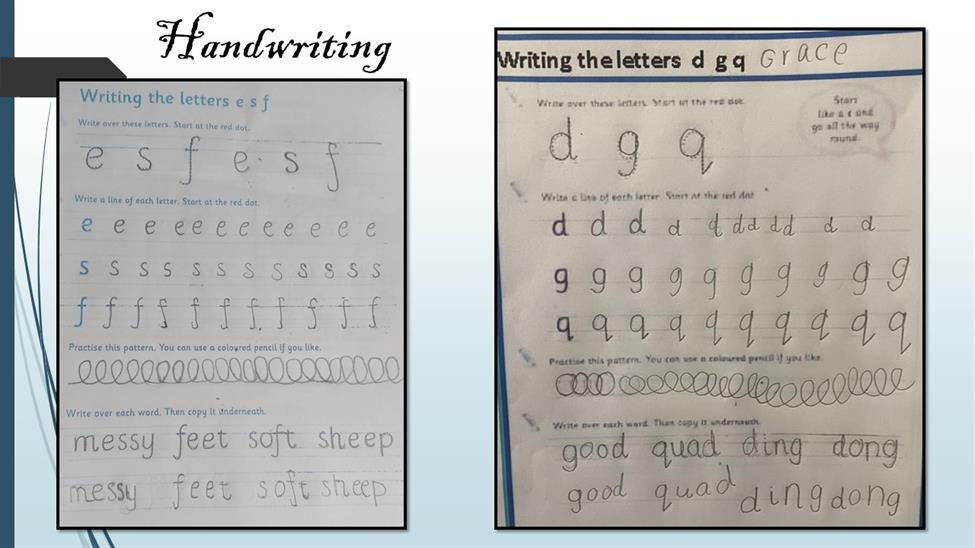 Handwriting
Writing the letters e s f
Write over these letters. Start at the red dot.
e s f e s f
Write a line of each letter. Start at the red dot.
e e e e e e e e e e e e
s s s s s s s s s s s s
f f f f f f f f f f f
Practise this pattern. You can use a coloured pencil if you like.
Write over each word. Then copy it underneath.
messy feet soft sheep
messy feet soft sheep
Writing the letters d g q Grace
Write over these letters. Start at the red dot.
Start
like a c and
go all the way
round.
d g q
Write a line of each letter. Start at the red dot
d d d d d d d d d d d
g g g g g g g g g g
q q q q q q q q q q
Practise this pattern. You can use a coloured pencil if you like.
Write over each word. Then copy it underneath.
good quad ding dong
good quad ding dong